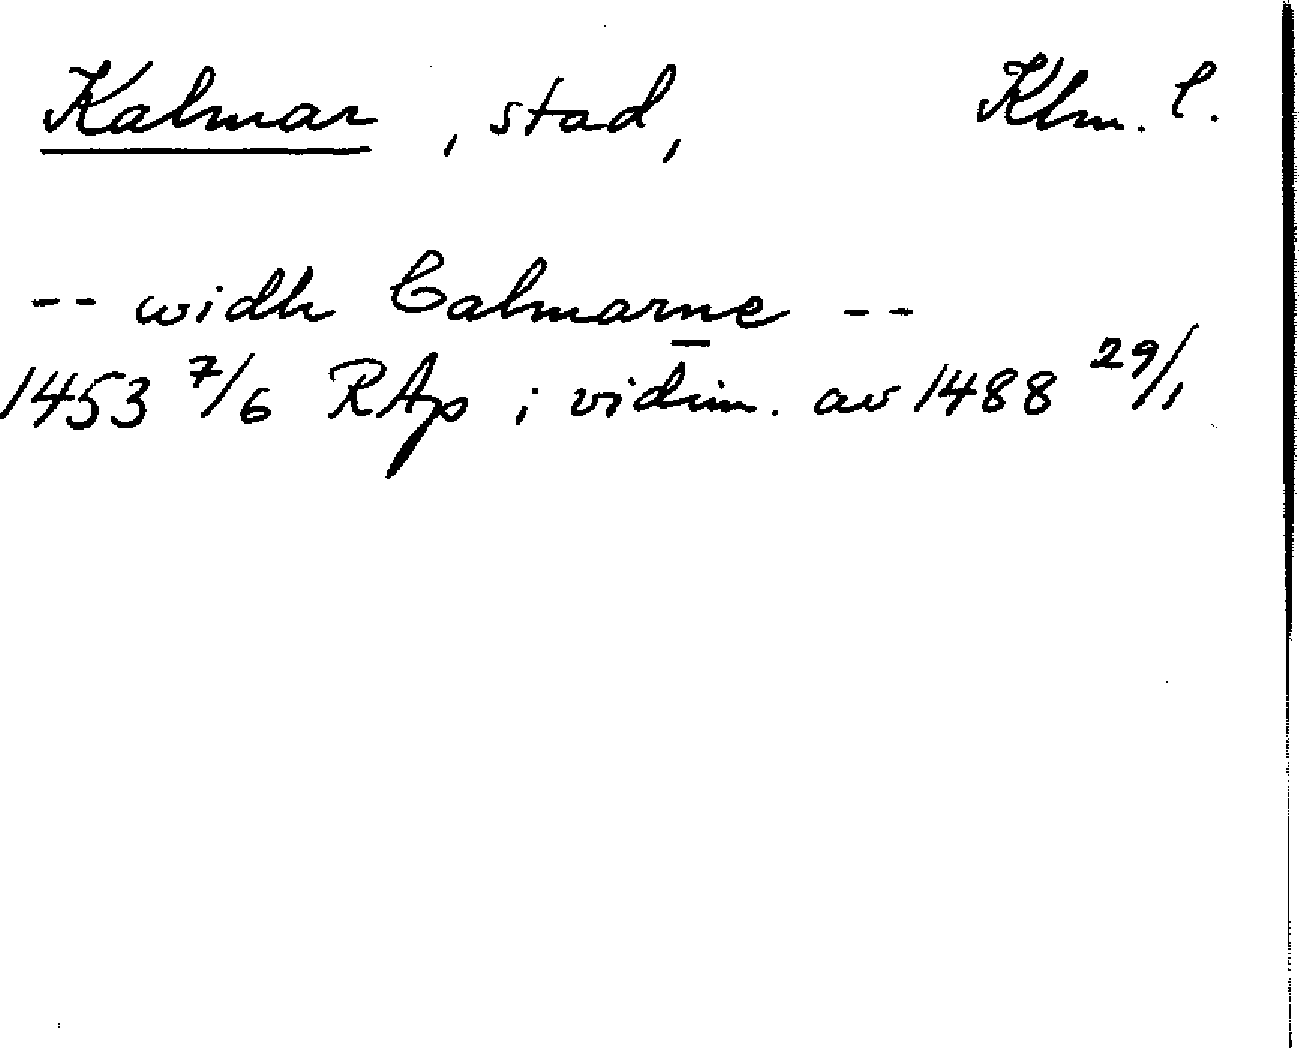 Kalmar, stad, Klm. l.
-- widh Calmarne --
1453 7/6 RAp i vidim. av 1488 29/1